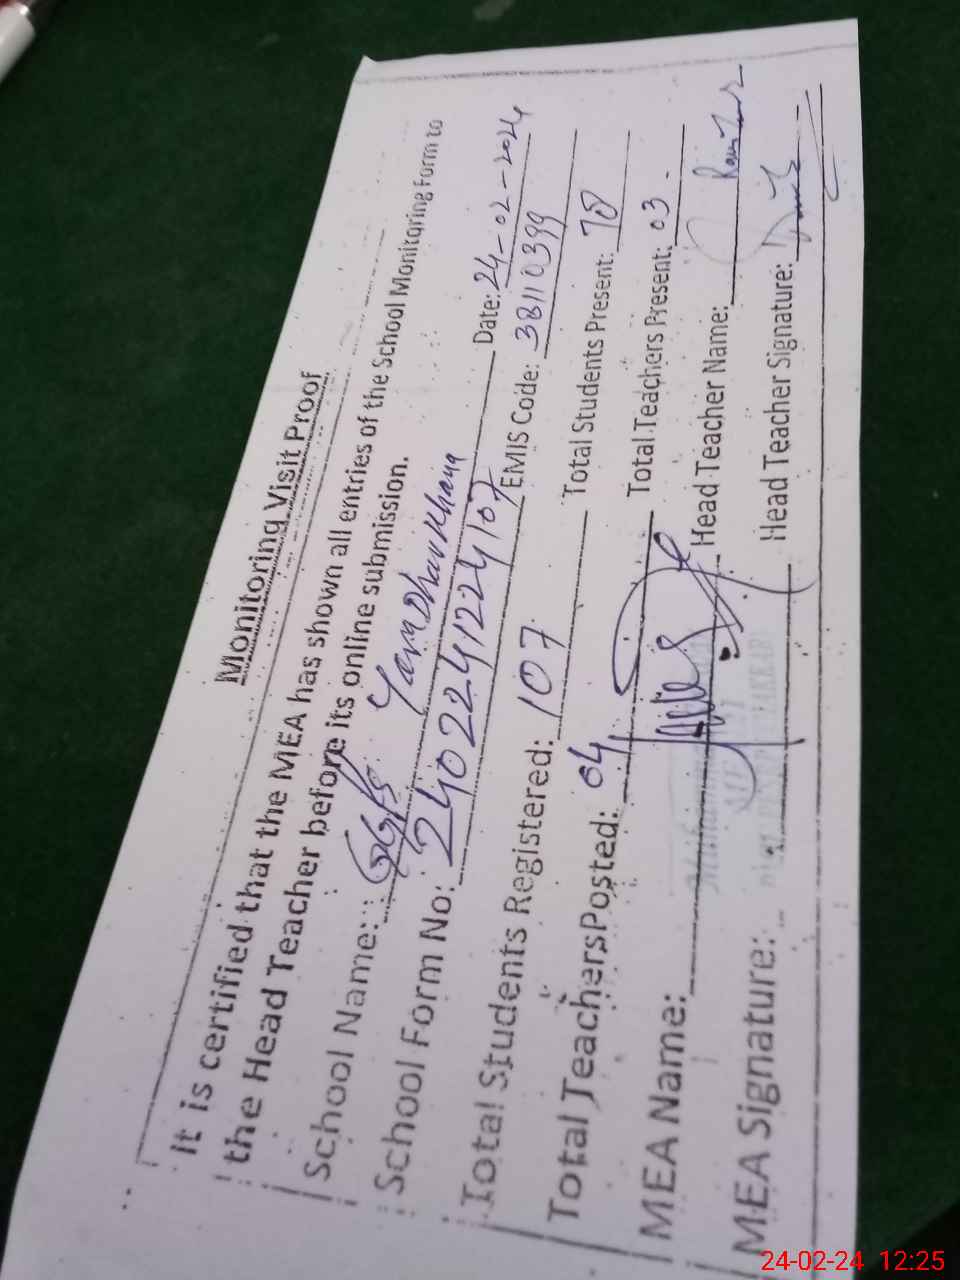 Monitoring Visit Proof
It is certified that the MEA has shown all entries of the School Monitoring Form to
the Head Teacher before its online submission.
School Name: GGPS Date: 24-02-2024
School Form No: 24022241224107 EMIS Code: 38110399
Total Students Registered: 107 Total Students Present: 78
Total Teachers Posted: 04 Total Teachers Present: 03
MEA Name: Head Teacher Name:
MEA Signature: Head Teacher Signature:
24-02-24 12:25